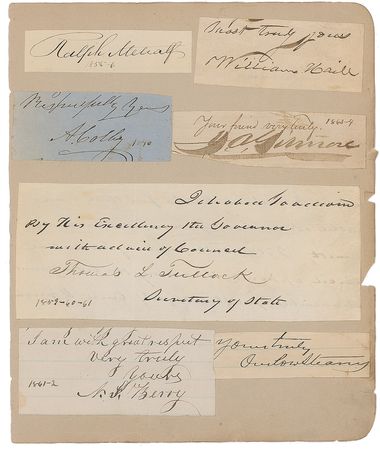 Ralph Metcalf
1855-6
Most truly yours
William Haile
Respectfully Yours
A Colby 1870
Your friend very truly. 1863-4
J A Gilmore
Ichabod Goodwin
By His Excellency the Governor
with advice of Council
Thomas L Tullock
Secretary of State
1859-60-61
I am with great respect
very truly
yours
1861-2
N. S. Berry
Yours truly
Onslow Stearns